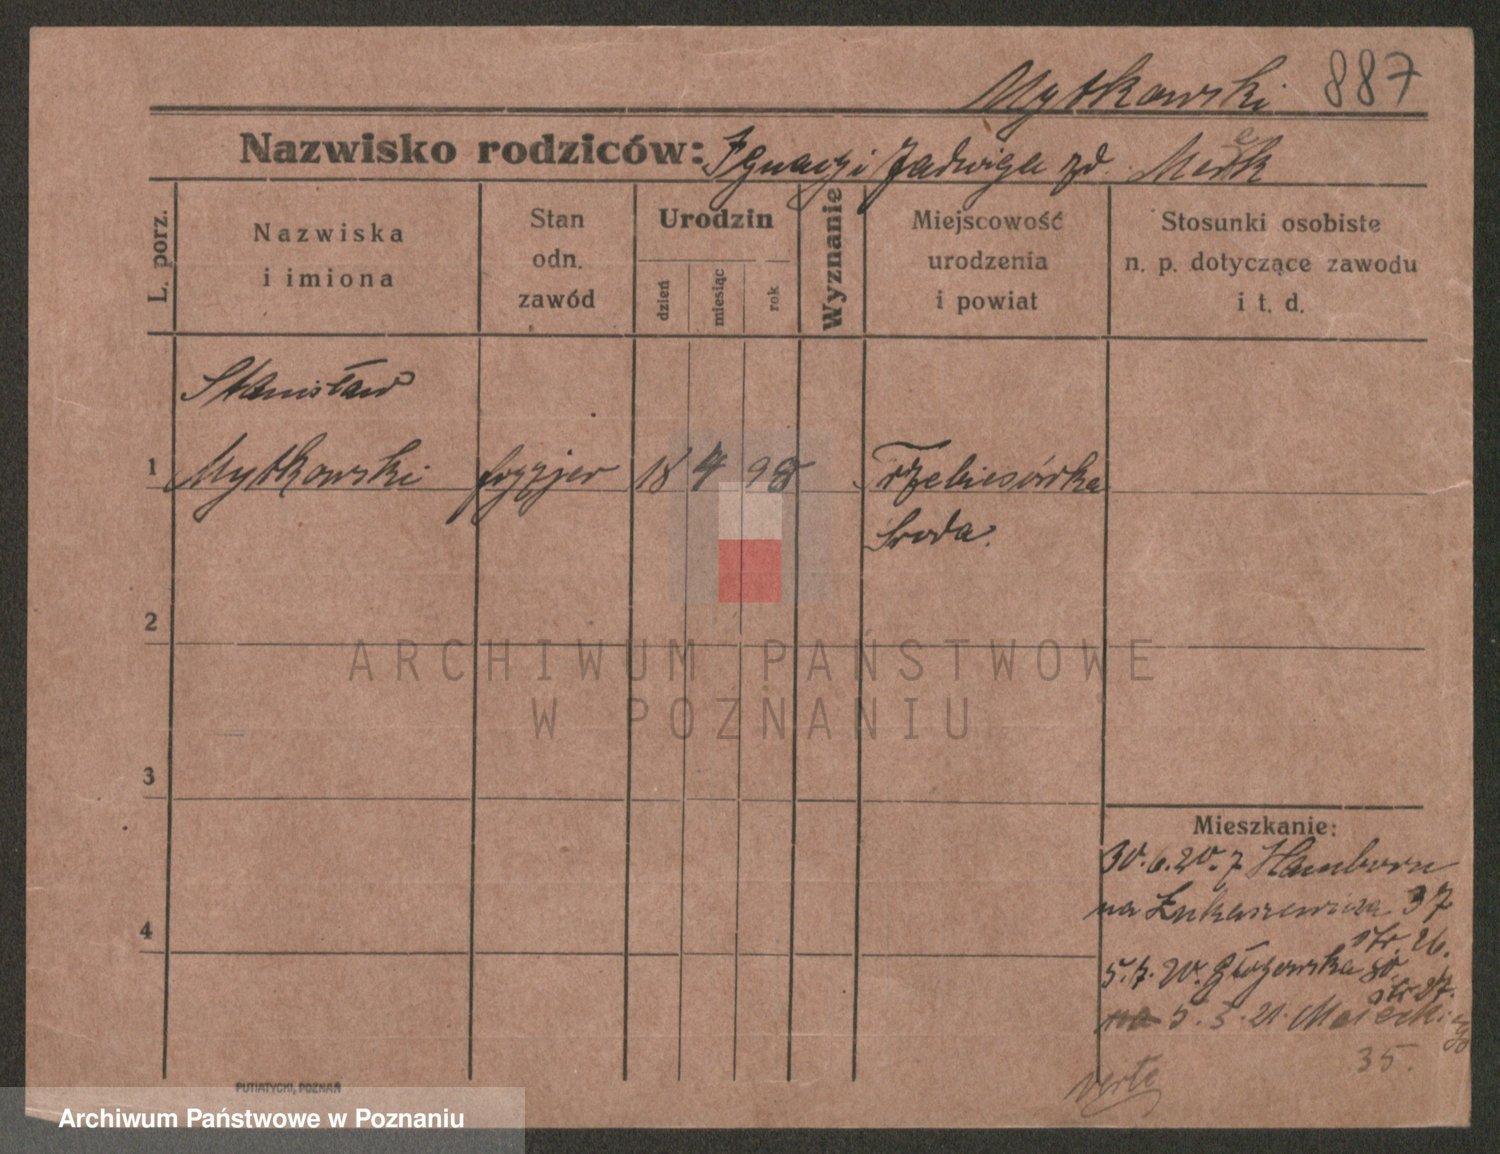 Mytkowski 887
Nazwisko rodziców: Ignacy i Jadwiga zd.
L. porz.
Nazwiska
i imiona
Stan
odn.
zawód
Urodzin
dzień
miesiąc
rok
Wyznanie
Miejscowość
urodzenia
i powiat
Stosunki osobiste
n. p. dotyczące zawodu
i t. d.
Stanisław
1 Mytkowski fryzjer 18 4 98 Trzebiesówka
Środa.
2
ARCHIWUM PAŃSTWOWE
W POZNANIU
3
Mieszkanie:
30.6.20. z Hamborn
na Łukaszewicza 37
4
str. 26.
5.7.20. Głogowska
str 27.
na 5.3.21.
35.
verte
PUTIATYCKI, POZNAŃ
Archiwum Państwowe w Poznaniu